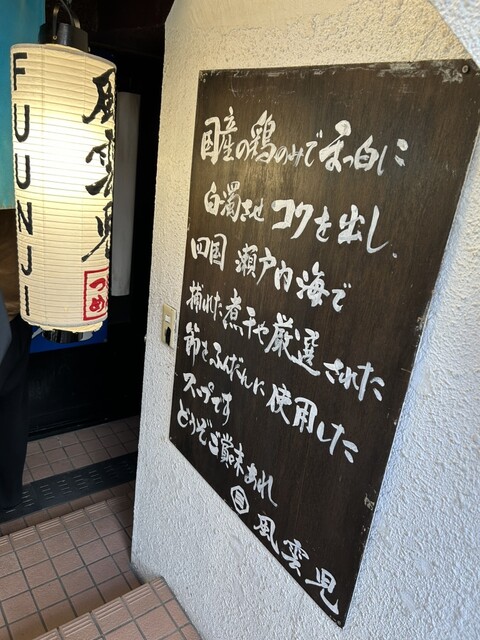 FUUNJI
風雲児
つけめん
国産の鶏のみで真っ白に
白濁させ コクを出し、
四国 瀬戸内海で
捕れた煮干や厳選された
節をふんだんに使用した
スープです
どうぞご賞味あれ
風雲児